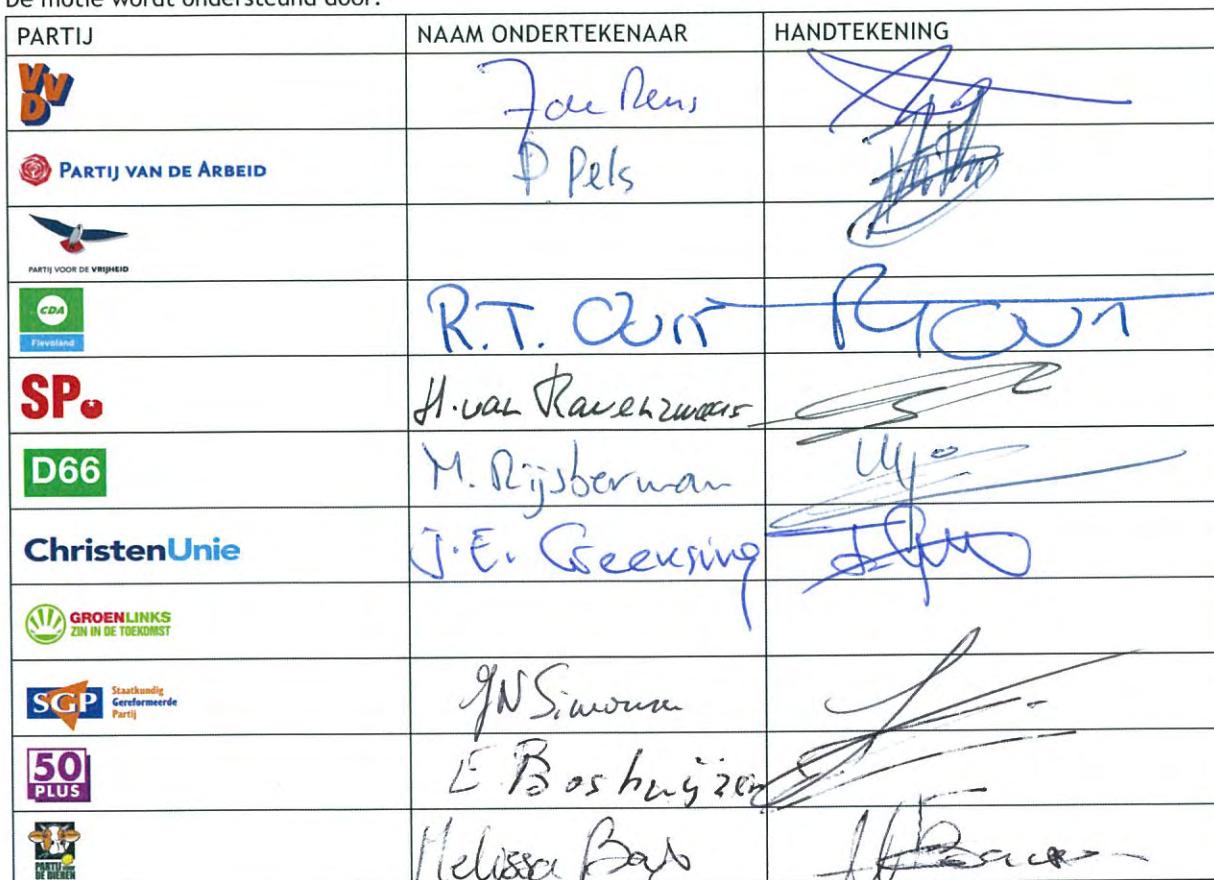 De motie wordt ondersteund door:
PARTIJ NAAM ONDERTEKENAAR HANDTEKENING
VVD J de Reus
PARTIJ VAN DE ARBEID P Pels
PARTIJ VOOR DE VRIJHEID
CDA Flevoland R.T. Oost
SP. H. van Ravenzwaaij
D66 M. Rijsberman
ChristenUnie J.E. Geersing
GROENLINKS
ZIN IN DE TOEKOMST
SGP Staatkundig
Gereformeerde
Partij
JN Simonse
50 PLUS E Boshuijzen
PARTIJ voor
DE DIEREN
Melissa